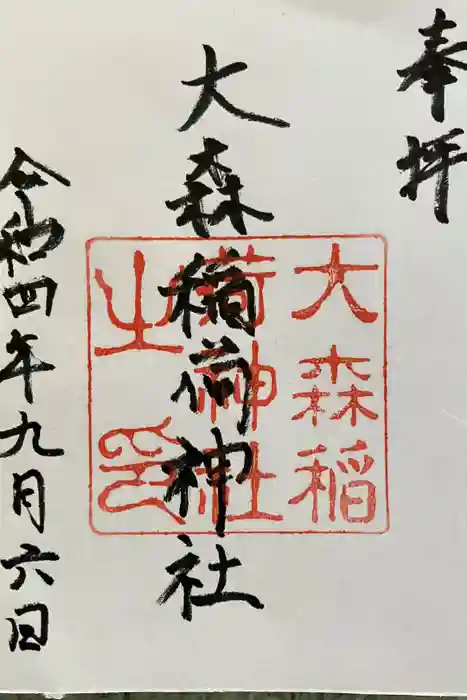 奉拝
大森稲荷神社
大森稲
荷神社
之印
令和四年九月六日